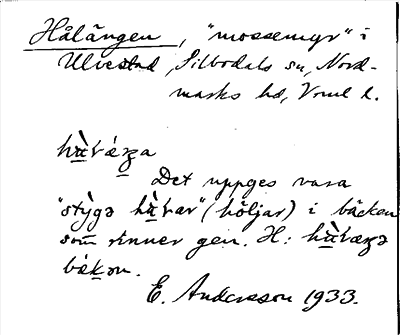 Hålängen, "mossemyr" i
Ulvestad, Silbodals sn, Nord-
marks hd, Vrml l.
Det uppges vara
"stÿgə hùvar" (höljar) i bäcken
som rinner gen. H:
E. Andersson 1933.